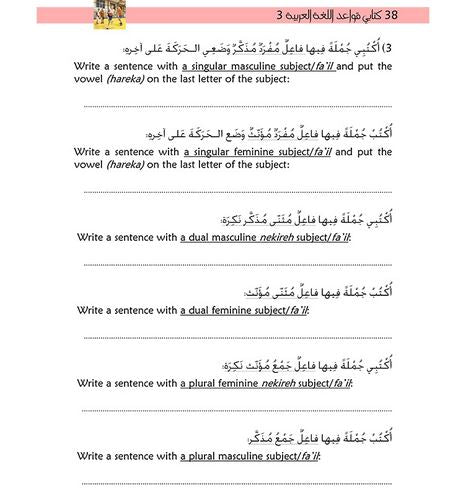 38 كتابي قواعد اللغة العربية 3
3) أُكْتُبِي جُمْلَةً فِيها فاعِلٌ مُفْرَدٌ مُذَكَّرٌ وَضَعِي الـحَرَكَةَ عَلى آخِرِهِ:
Write a sentence with a singular masculine subject/fa'il and put the
vowel (hareka) on the last letter of the subject:
أُكْتُبْ جُمْلَةً فِيها فاعِلٌ مُفْرَدٌ مُؤَنَّثٌ وَضَعِ الـحَرَكَةَ عَلى آخِرِهِ:
Write a sentence with a singular feminine subject/fa'il and put the
vowel (hareka) on the last letter of the subject:
أُكْتُبِي جُمْلَةً فِيها فاعِلٌ مُثَنّى مُذَكَّر نَكِرَة:
Write a sentence with a dual masculine nekireh subject/fa'il:
أُكْتُبْ جُمْلَةً فِيها فاعِلٌ مُثَنّى مُؤَنّث:
Write a sentence with a dual feminine subject/fa'il:
أُكْتُبِي جُمْلَةً فِيها فاعِلٌ جَمْعُ مُؤَنّث نَكِرَة:
Write a sentence with a plural feminine nekireh subject/fa'il:
أُكْتُبْ جُمْلَةً فِيها فاعِلٌ جَمْعُ مُذَكَّر:
Write a sentence with a plural masculine subject/fa'il: